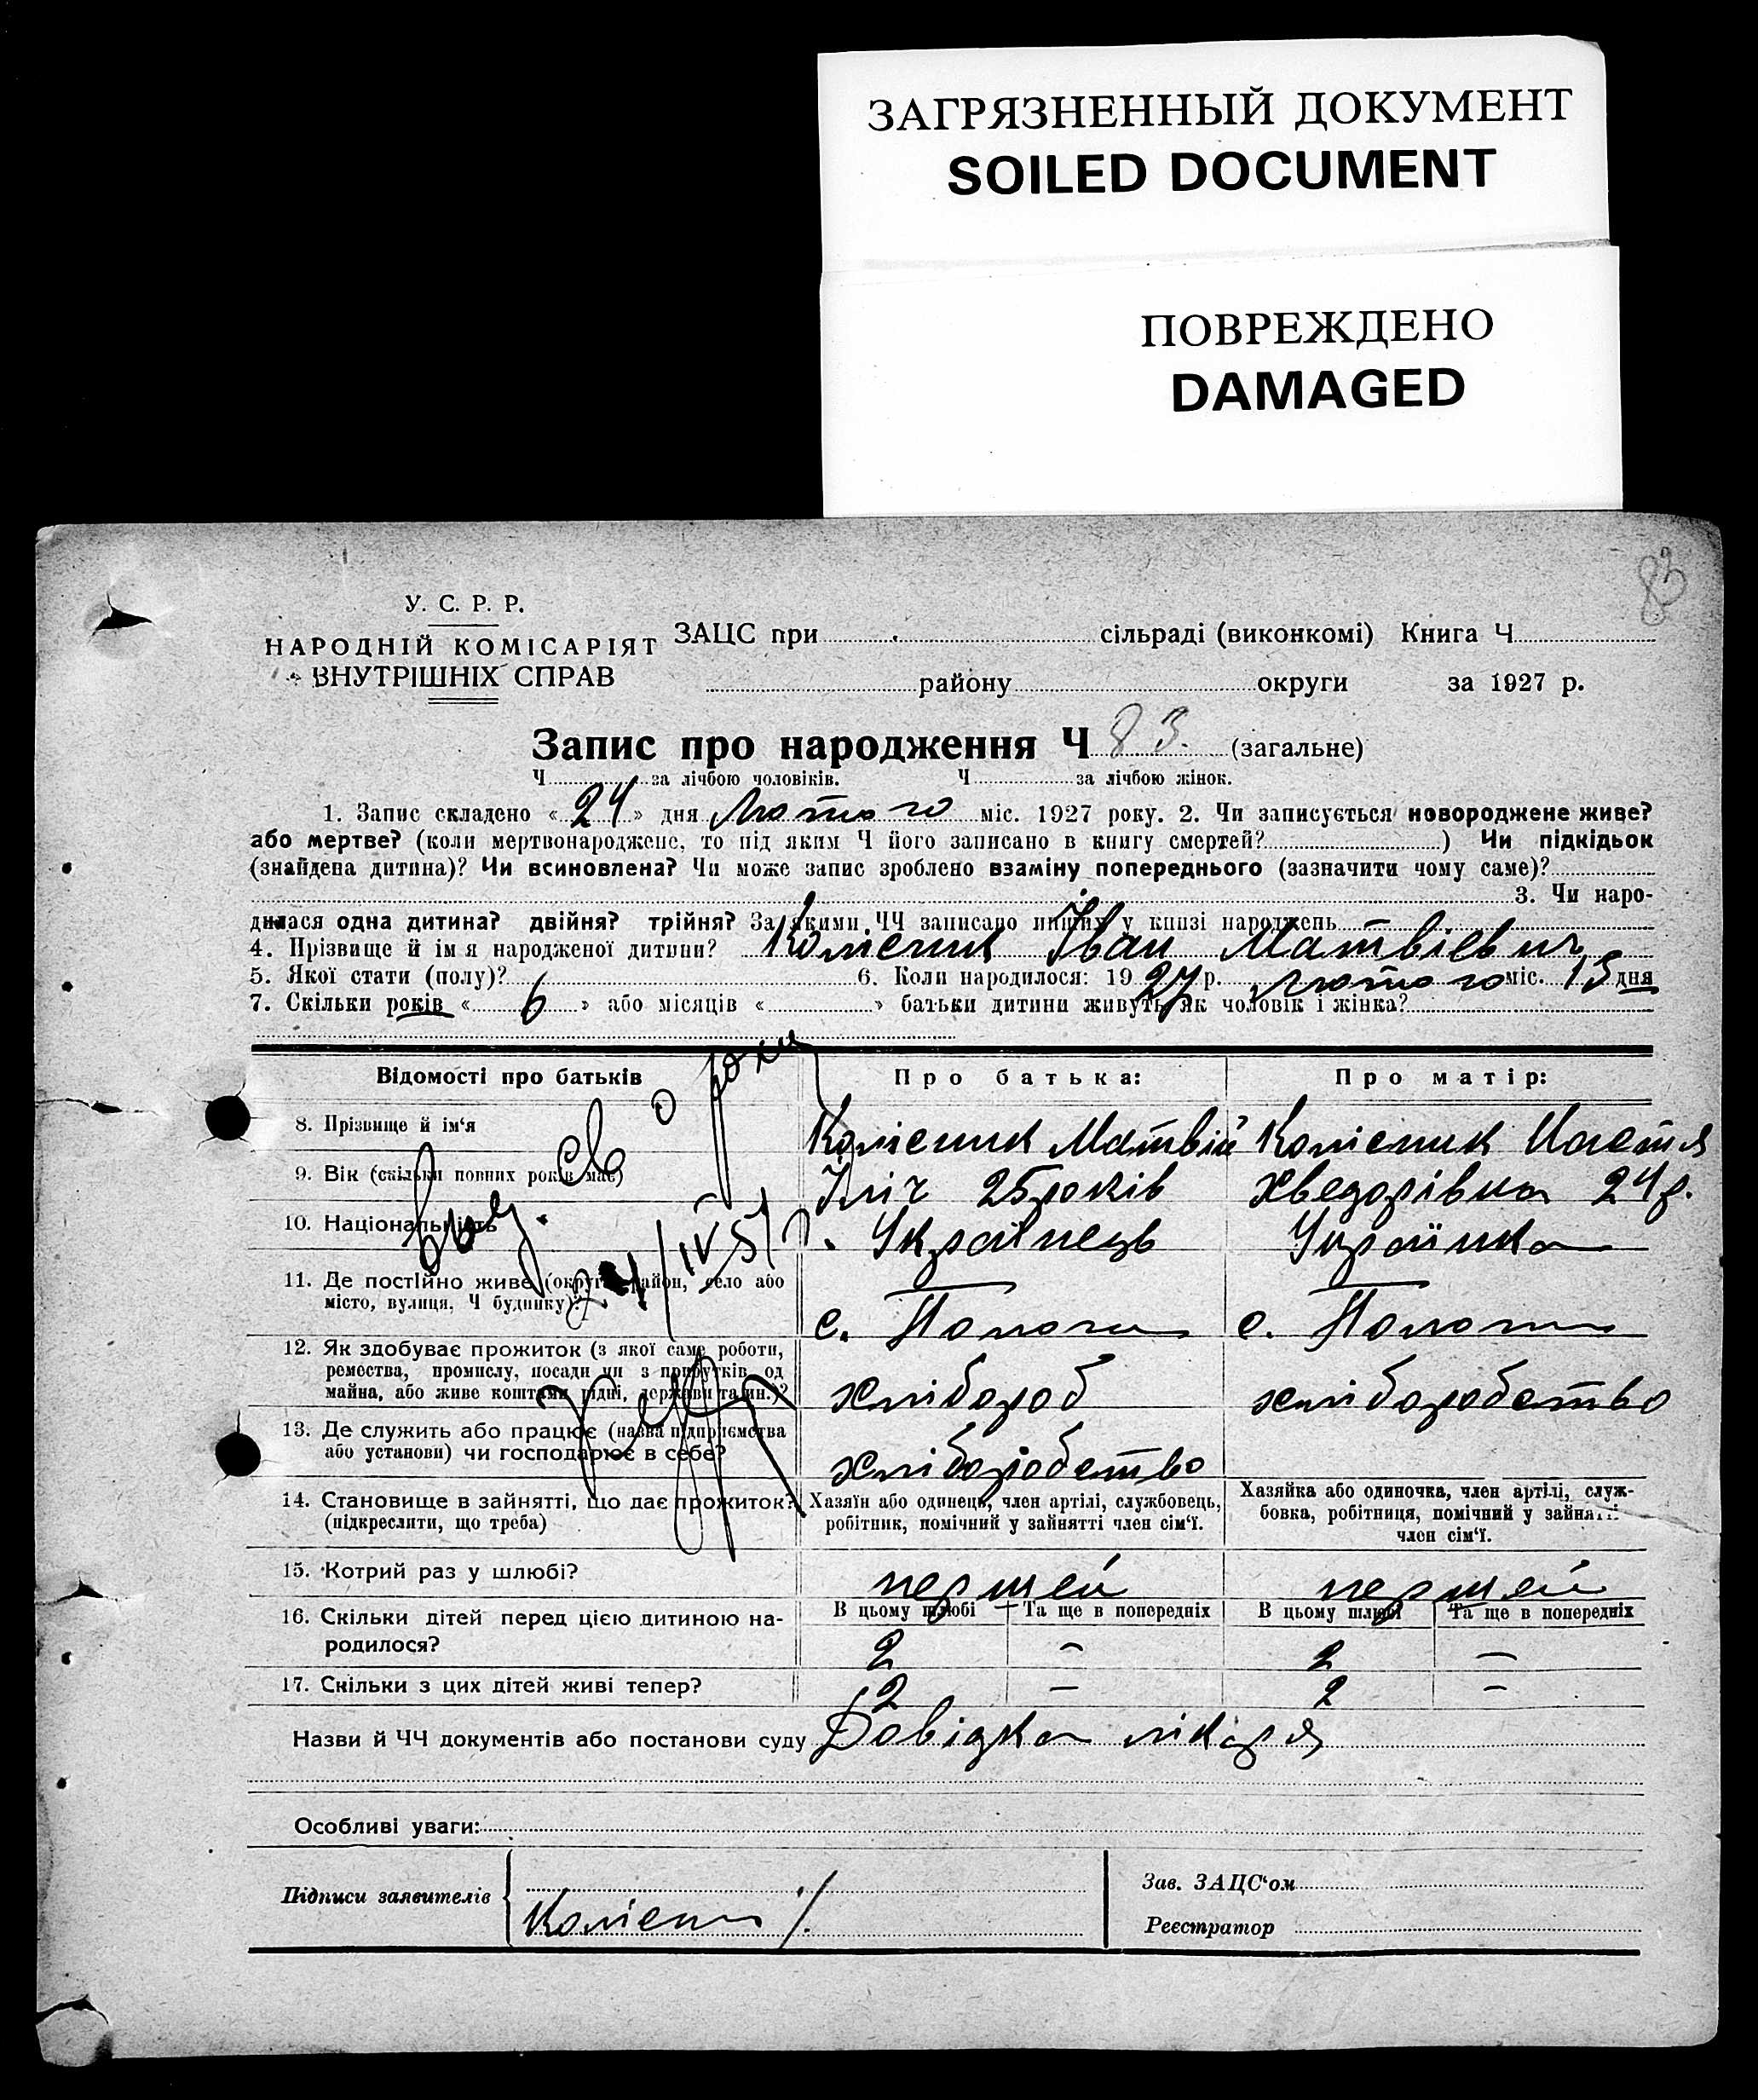 ЗАГРЯЗНЕННЫЙ ДОКУМЕНТ
SOILED DOCUMENT
ПОВРЕЖДЕНО
DAMAGED
83
У. С. Р. Р.
НАРОДНІЙ КОМІСАРІЯТ
ВНУТРІШНІХ СПРАВ
ЗАЦС при сільраді (виконкомі) Книга Ч
району округи за 1927 р.
Запис про народження Ч 83. (загальне)
Ч за лічбою чоловіків. Ч за лічбою жінок.
1. Запис складено « 24 » дня Лютого міс. 1927 року. 2. Чи записується новороджене живе?
або мертве? (коли мертвонароджене, то під яким Ч його записано в книгу смертей? ) Чи підкідьок
(знайдена дитина)? Чи всиновлена? Чи може запис зроблено взаміну попереднього (зазначити чому саме)?
3. Чи наро-
дилася одна дитина? двійня? трійня? За якими ЧЧ записано инших у книзі народжень
4. Прізвище й ім я народженої дитини? Колісник Іван Матвієвич
5. Якої стати (полу)? 6. Коли народилося: 1927 р. лютого міс. 15 дня
7. Скільки років « 6 » або місяців « » батьки дитини живуть як чоловік і жінка?
Відомості про батьків Про батька: Про матір:
8. Прізвище й ім'я Колісник Матвій Колісник Настя
9. Вік (скільки повних років має) Іліч 25 років Хведорівна 24 р.
10. Національність Українець Українка
11. Де постійно живе (округа, район, село або
місто, вулиця, Ч будинку)? с. Пологи с. Пологи
12. Як здобуває прожиток (з якої саме роботи,
ремества, промислу, посади чи з прибутків од
майна, або живе коштами рідні, держави та ин.)? хлібороб хліборобство
13. Де служить або працює (назва підприємства
або установи) чи господарює в себе? хліборобство
14. Становище в зайнятті, що дає прожиток?
(підкреслити, що треба)
Хазяїн або одинець, член артілі, службовець,
робітник, помічний у зайнятті член сім'ї.
Хазяйка або одиночка, член артілі, служ-
бовка, робітниця, помічний у зайнятті
член сім'ї.
15. Котрий раз у шлюбі? першей першей
16. Скільки дітей перед цією дитиною на-
родилося?
В цьому шлюбі Та ще в попередніх В цьому шлюбі Та ще в попередніх
2 – 2 –
17. Скільки з цих дітей живі тепер? 2 – 2 –
Назви й ЧЧ документів або постанови суду Довідка лікаря
Особливі уваги:
Підписи заявителів
Зав. ЗАЦС'ом
Реєстратор